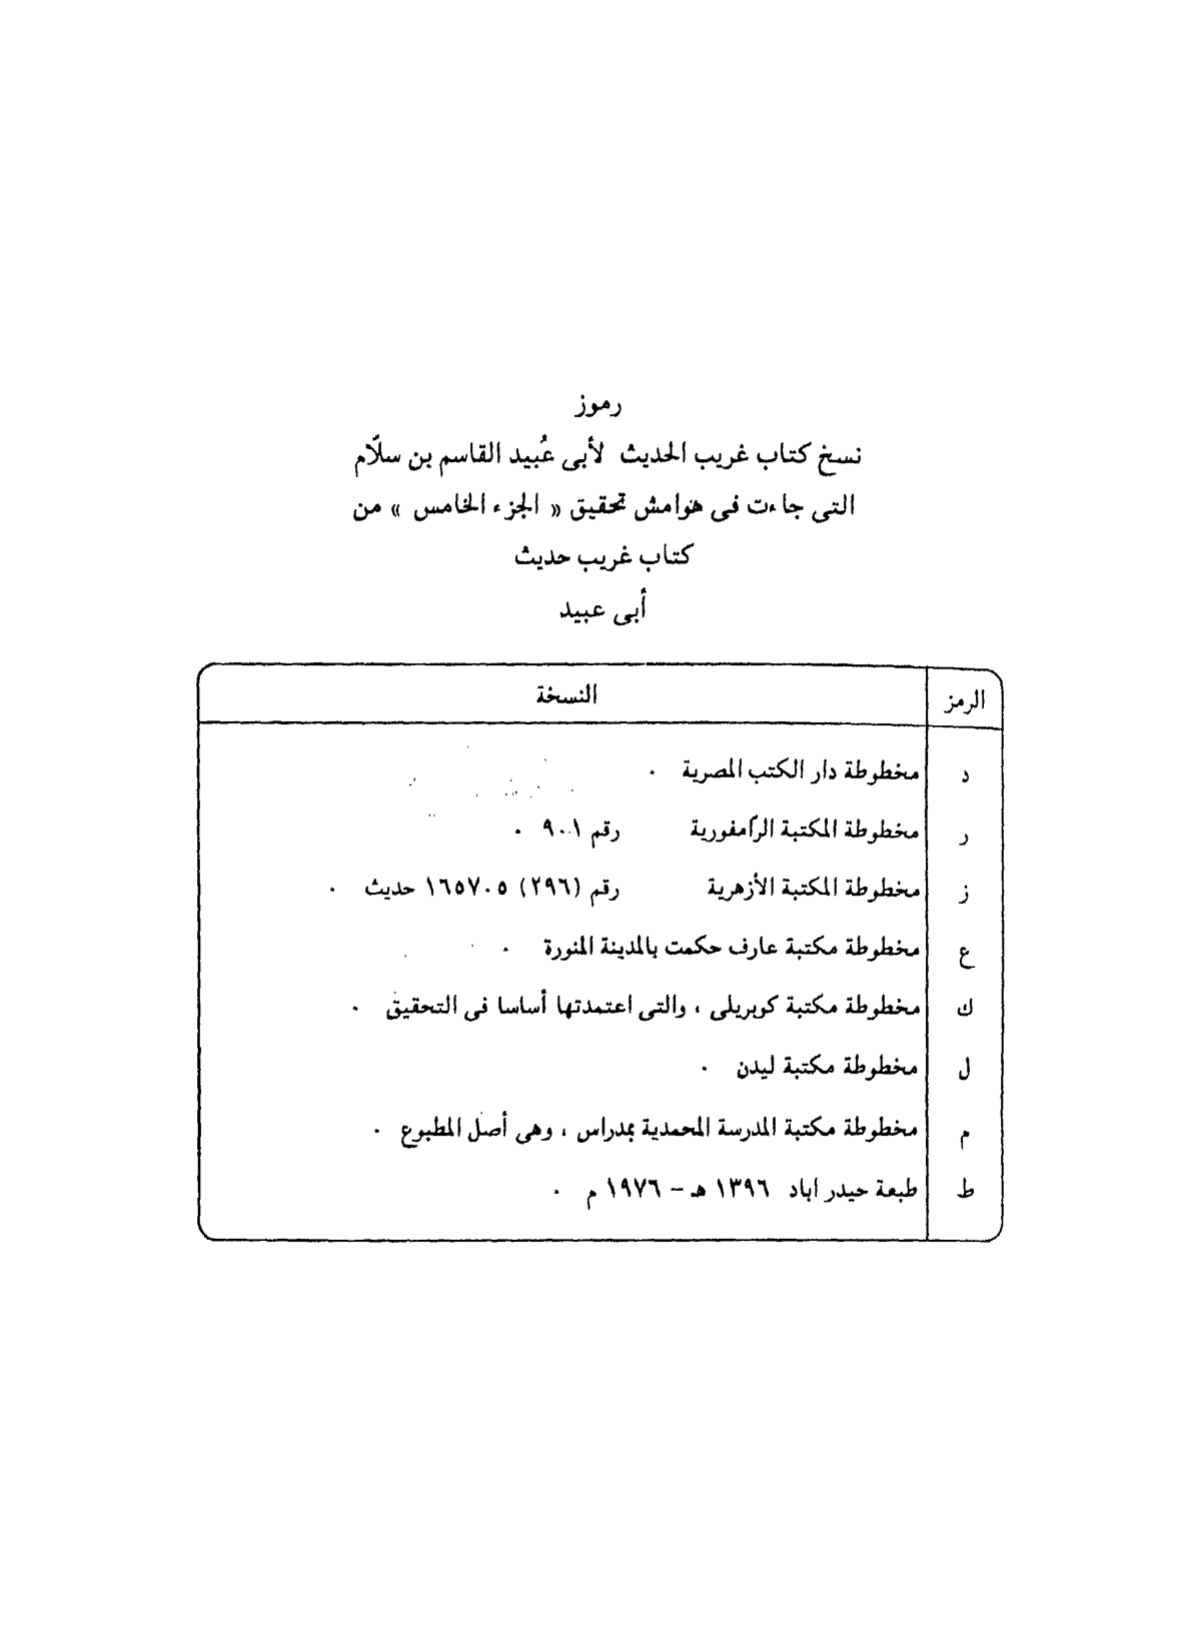 رموز
نسخ كتاب غريب الحديث لأبى عُبيد القاسم بن سلّام
التى جاءت فى هوامش تحقيق « الجزء الخامس » من
كتاب غريب حديث
أبى عبيد
الرمز النسخة
د مخطوطة دار الكتب المصرية .
ر مخطوطة المكتبة الرامفورية رقم ٩٠١ .
ز مخطوطة المكتبة الأزهرية رقم (٢٩٦) ١٦٥٧٠٥ حديث .
ع مخطوطة مكتبة عارف حكمت بالمدينة المنورة .
ك مخطوطة مكتبة كوبريلى ، والتى اعتمدتها أساسا فى التحقيق .
ل مخطوطة مكتبة ليدن .
م مخطوطة مكتبة المدرسة المحمدية بمدراس ، وهى أصل المطبوع .
ط طبعة حيدر اباد ١٣٩٦ هـ – ١٩٧٦ م .